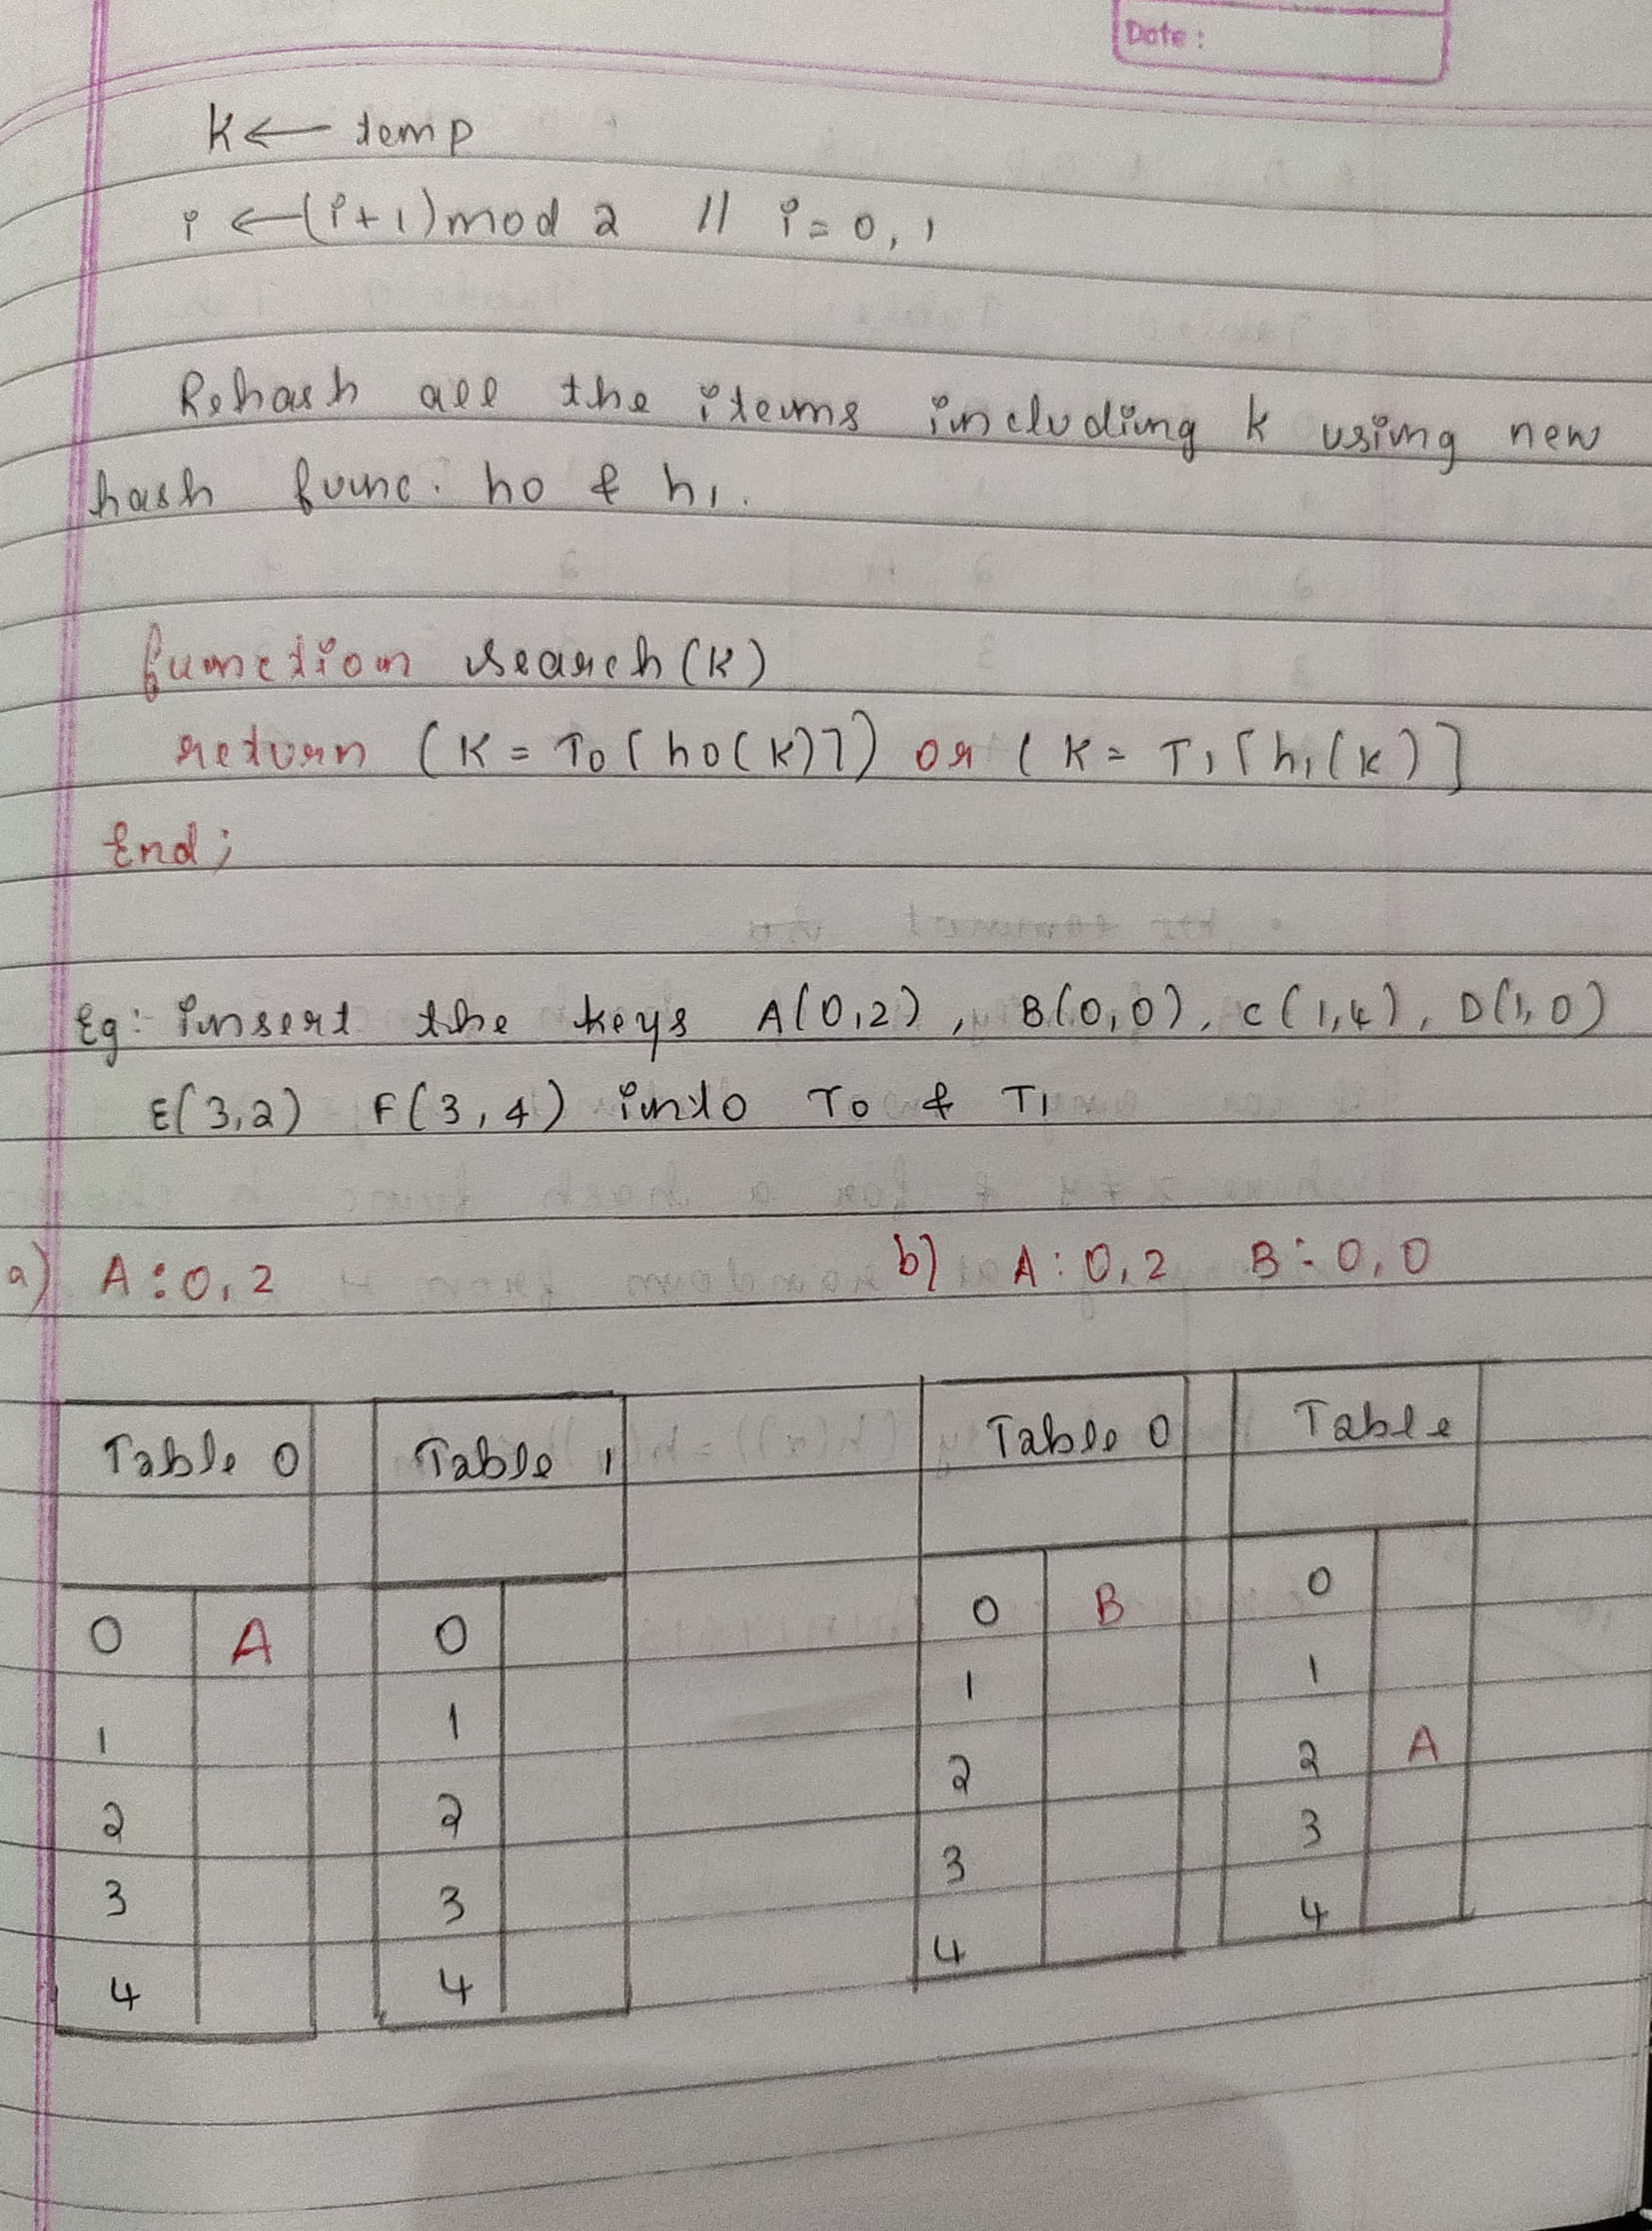 Date :
K ← temp
i ← (i+1) mod 2 // i = 0, 1
Rehash all the items including k using new
hash func. h0 & h1.
function search(K)
return (K = T0[h0(K)]) or (K = T1[h1(K)]
End;
Eg: insert the keys A(0,2), B(0,0), C(1,4), D(1,0)
E(3,2) F(3,4) into T0 & T1
a) A : 0, 2 b) A : 0, 2 B : 0, 0
Table 0 Table 1 Table 0 Table
0 A 0 0 B 0
1 1 1 1
2 2 2 2 A
3 3 3 3
4 4 4 4